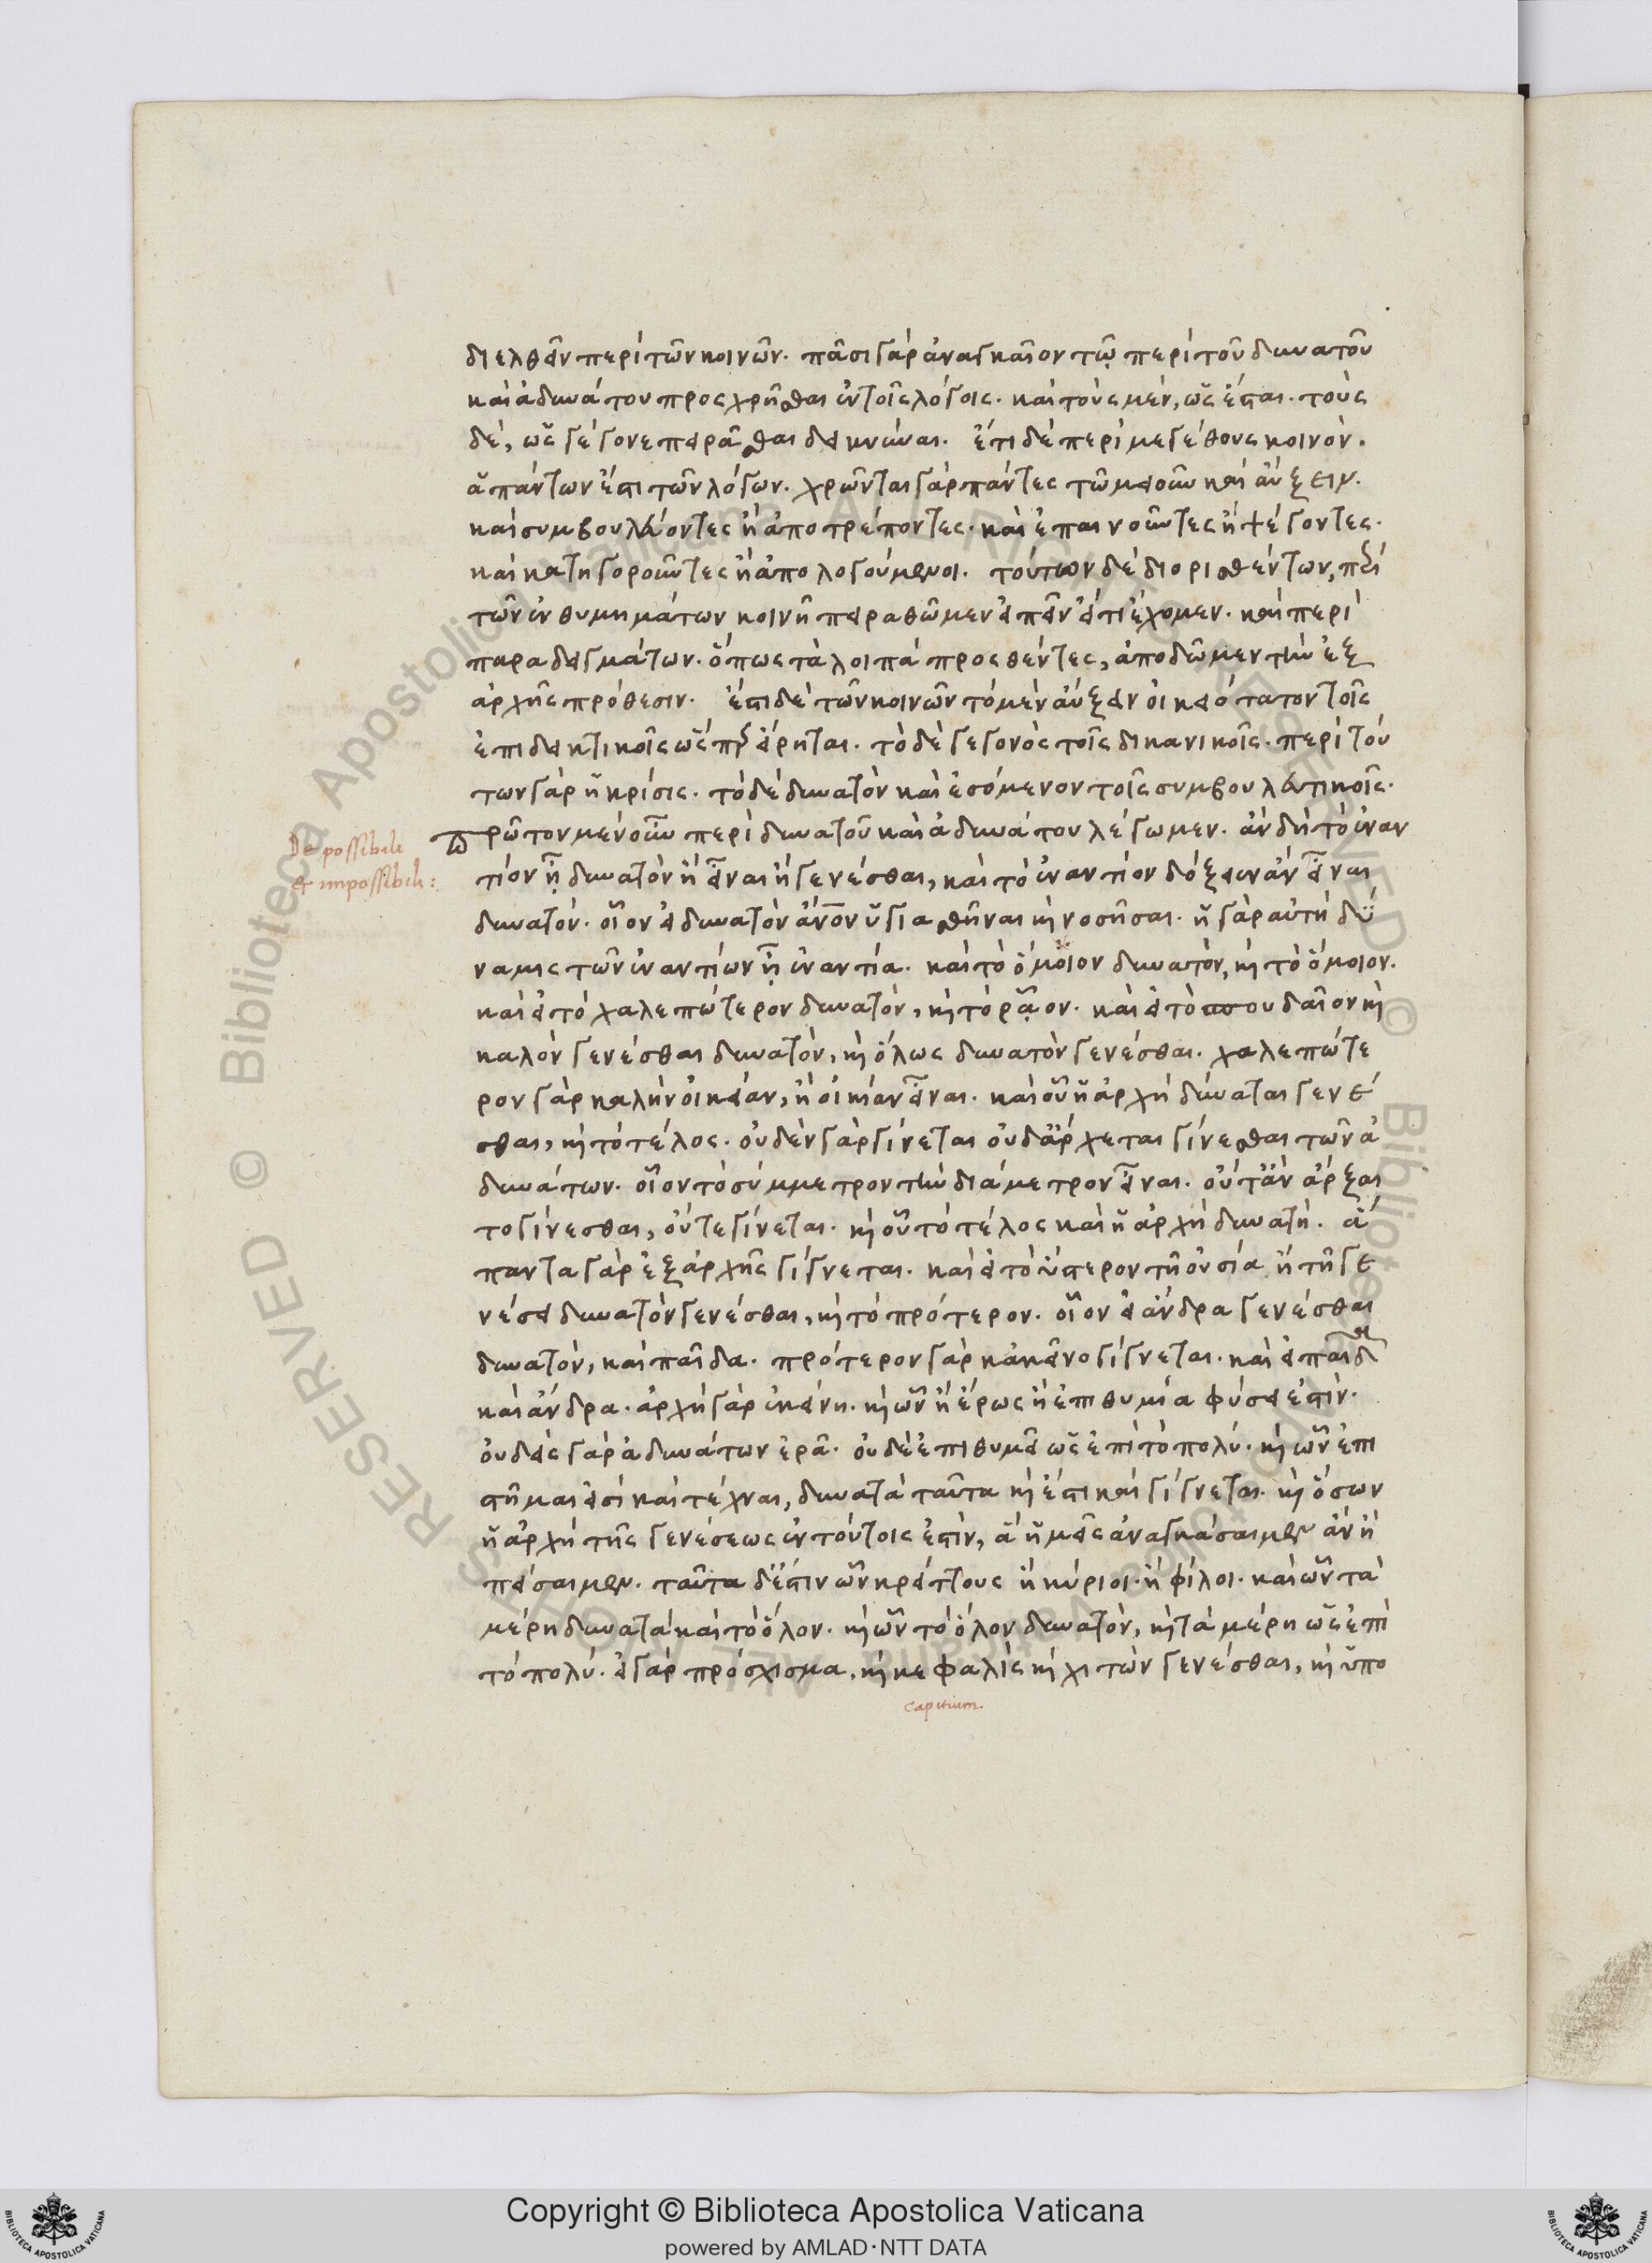 διελθεῖν περὶ τῶν κοινῶν. πᾶσι γὰρ ἀναγκαῖον τῶ περὶ τοῦ δυνατοῦ
καὶ ἀδυνάτου προσχρῆσθαι ἐν τοῖς λόγοις. καὶ τοὺς μέν, ὡς ἔσται. τοὺς
δέ, ὡς γέγονε πειρᾶσθαι δεικνύναι. ἔτι δὲ περὶ μεγέθους κοινὸν.
ἁπάντων ἐστὶ τῶν λόγων. χρῶνται γὰρ πάντες τῶ μειοῦν καὶ αὔξειν.
καὶ συμβουλεύοντες ἢ ἀποτρέποντες. καὶ ἐπαινοῦντες ἢ ψέγοντες.
καὶ κατηγοροῦντες ἢ ἀπολογούμενοι. τούτων δὲ διορισθέντων, περὶ
τῶν ἐνθυμημάτων κοινῆ πειραθῶμεν εἰπεῖν εἴ τι ἔχομεν. καὶ περὶ
παραδειγμάτων. ὅπως τὰ λοιπὰ προσθέντες, ἀποδῶμεν τὴν ἐξ
ἀρχῆς πρόθεσιν. ἔστι δὲ τῶν κοινῶν τὸ μὲν αὔξειν οἰκειότατον τοῖς
ἐπιδεικτικοῖς ὥσπερ εἴρηται. τὸ δὲ γεγονὸς τοῖς δικανικοῖς. περὶ τού
των γὰρ ἡ κρίσις. τὸ δὲ δυνατὸν καὶ ἐσόμενον τοῖς συμβουλευτικοῖς.
De possibili
& impossibili:
πρῶτον μὲν οὖν περὶ δυνατοῦ καὶ ἀδυνάτου λέγωμεν. ἂν δὴ τὸ ἐναν
τίον ἦ δυνατὸν ἢ εἶναι ἢ γενέσθαι, καὶ τὸ ἐναντίον δόξειεν ἂν εἶναι
δυνατόν. οἷον εἰ δυνατὸν ἄνον ὑγιασθῆναι καὶ νοσῆσαι. ἡ γὰρ αὐτὴ δύ
ναμις τῶν ἐναντίων ἦ ἐναντία. καὶ τὸ ὅμοιον δυνατὸν, καὶ τὸ ὅμοιον.
καὶ εἰ τὸ χαλεπώτερον δυνατὸν, καὶ τὸ ρᾶον. καὶ εἰ τὸ σπουδαῖον καὶ
καλὸν γενέσθαι δυνατὸν, καὶ ὅλως δυνατὸν γενέσθαι. χαλεπώτε
ρον γὰρ καλὴν οἰκείαν, ἢ οἰκίαν εἶναι. καὶ οὗ ἡ ἀρχὴ δύναται γενέ
σθαι, καὶ τὸ τέλος. οὐδὲν γὰρ γίνεται οὐδ' ἄρχεται γίνεσθαι τῶν ἀ
δυνάτων. οἷον τὸ σύμμετρον τὴν διάμετρον εἶναι. οὔτ' ἂν ἄρξαι
το γίνεσθαι, οὔτε γίνεται. καὶ οὗ τὸ τέλος καὶ ἡ ἀρχὴ δυνατή. ἅ
παντα γὰρ ἐξ ἀρχῆς γίγνεται. καὶ εἰ τὸ ὕστερον τῆ οὐσία ἢ τῆ γε
νέσει δυνατὸν γενέσθαι, καὶ τὸ πρότερον. οἷον εἰ ἄνδρα γενέσθαι
δυνατὸν, καὶ παῖδα. πρότερον γὰρ κἀκεῖνο γίγνεται. καὶ εἰ παῖδα
καὶ ἄνδρα. ἀρχὴ γὰρ ἐκείνη. καὶ ὧν ἢ ἔρως ἢ ἐπιθυμία φύσει ἐστὶν.
οὐδεὶς γὰρ ἀδυνάτων ἐρᾶ. οὐδὲ ἐπιθυμεῖ ὡς ἐπὶ τὸ πολύ. καὶ ὧν ἐπι
στῆμαι εἰσὶ καὶ τέχναι, δυνατὰ ταῦτα καὶ ἔστι καὶ γίγνεται. καὶ ὅσων
ἡ ἀρχὴ τῆς γενέσεως ἐν τούτοις ἐστὶν, ἃ ἡμεῖς ἀναγκάσαιμεν ἂν ἢ
πείσαιμεν. ταῦτα δ' ἔστιν ὧν κρείττους ἢ κύριοι. ἢ φίλοι. καὶ ὧν τὰ
μέρη δυνατὰ καὶ τὸ ὅλον. καὶ ὧν τὸ ὅλον δυνατὸν, καὶ τὰ μέρη ὡς ἐπὶ
τὸ πολύ. εἰ γὰρ πρόσχισμα, καὶ κεφαλὶς καὶ χιτὼν γενέσθαι, καὶ ὑπο
capitium.
© Biblioteca Apostolica Vaticana ALL RIGHTS RESERVED
Copyright © Biblioteca Apostolica Vaticana
powered by AMLAD·NTT DATA
BIBLIOTECA APOSTOLICA VATICANA
BIBLIOTECA APOSTOLICA VATICANA